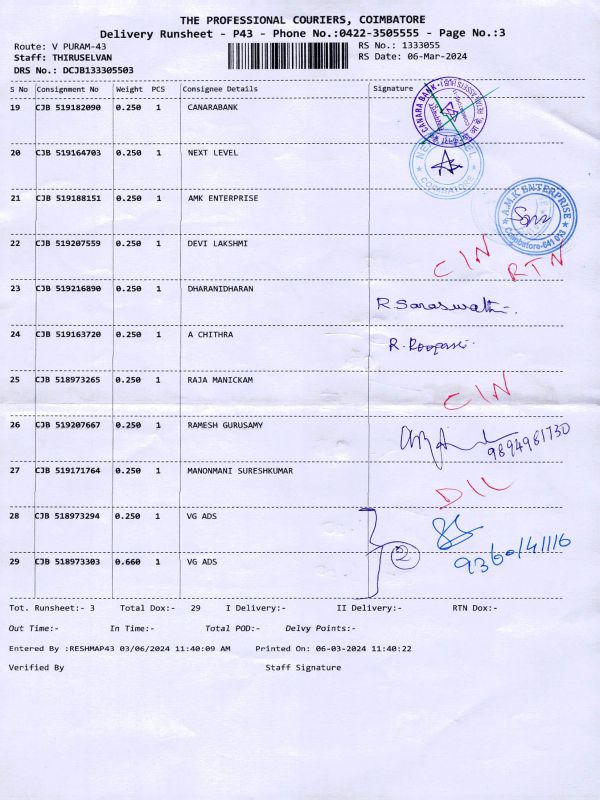 THE PROFESSIONAL COURIERS, COIMBATORE
Delivery Runsheet - P43 - Phone No.:0422-3505555 - Page No.:3
Route: V PURAM-43
Staff: THIRUSELVAN
DRS No.: DCJB133305503
RS No.: 1333055
RS Date: 06-Mar-2024
S No Consignment No Weight PCS Consignee Details Signature
19 CJB 519182090 0.250 1 CANARABANK
CANARA BANK
20 CJB 519164703 0.250 1 NEXT LEVEL
COIMBATORE
21 CJB 519188151 0.250 1 AMK ENTERPRISE
A.M.K ENTERPRISE
Coimbatore-641 033
22 CJB 519207559 0.250 1 DEVI LAKSHMI CIN RTN
23 CJB 519216890 0.250 1 DHARANIDHARAN R. Saraswathi
24 CJB 519163720 0.250 1 A CHITHRA
25 CJB 518973265 0.250 1 RAJA MANICKAM CIN
26 CJB 519207667 0.250 1 RAMESH GURUSAMY 9894981730
27 CJB 519171764 0.250 1 MANONMANI SURESHKUMAR D/L
28 CJB 518973294 0.250 1 VG ADS
2 9360141116
29 CJB 518973303 0.660 1 VG ADS
Tot. Runsheet:- 3 Total Dox:- 29 I Delivery:- II Delivery:- RTN Dox:-
Out Time:- In Time:- Total POD:- Delvy Points:-
Entered By :RESHMAP43 03/06/2024 11:40:09 AM Printed On: 06-03-2024 11:40:22
Verified By Staff Signature